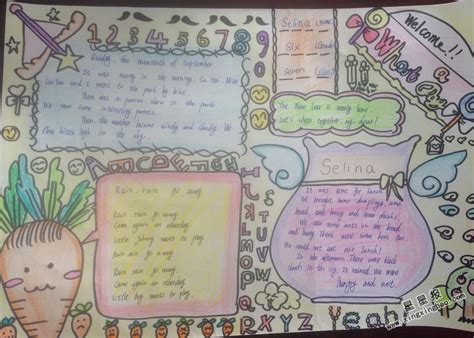 1 2 3 4 5 6 7 8 9 0
Sunday, the nineteenth of September
It was sunny in the morning. Su Hai, Mike
Liu Tao and I went to the park by bike.
There was a parrot show in the park
We saw some interesting parrots.
Then the weather became windy and cloudy. We
flew kites high in the sky.
Selina (name)
Six (Grade)
Seven (Class)
Welcome!!
What a
The New Year is nearly here.
Let's cheer together, my dear!
A B C D E F G H
Rain, rain go away
Rain rain go away
Come again another day
Little Johnny wants to play.
Rain rain, go away
Rain rain, go away
Come again another day
Little boy wants to play.
Selina
It was time for lunch
We brought some dumplings, some
bread and honey and some drinks.
We saw some ants on the bread
and honey. There were some bees too.
We could not eat our lunch!
In the afternoon. There were black
clouds in the sky. It rained. We were
hungry and wet.
R X Y Z
Yeah
星星报
www.xingxingbao.com